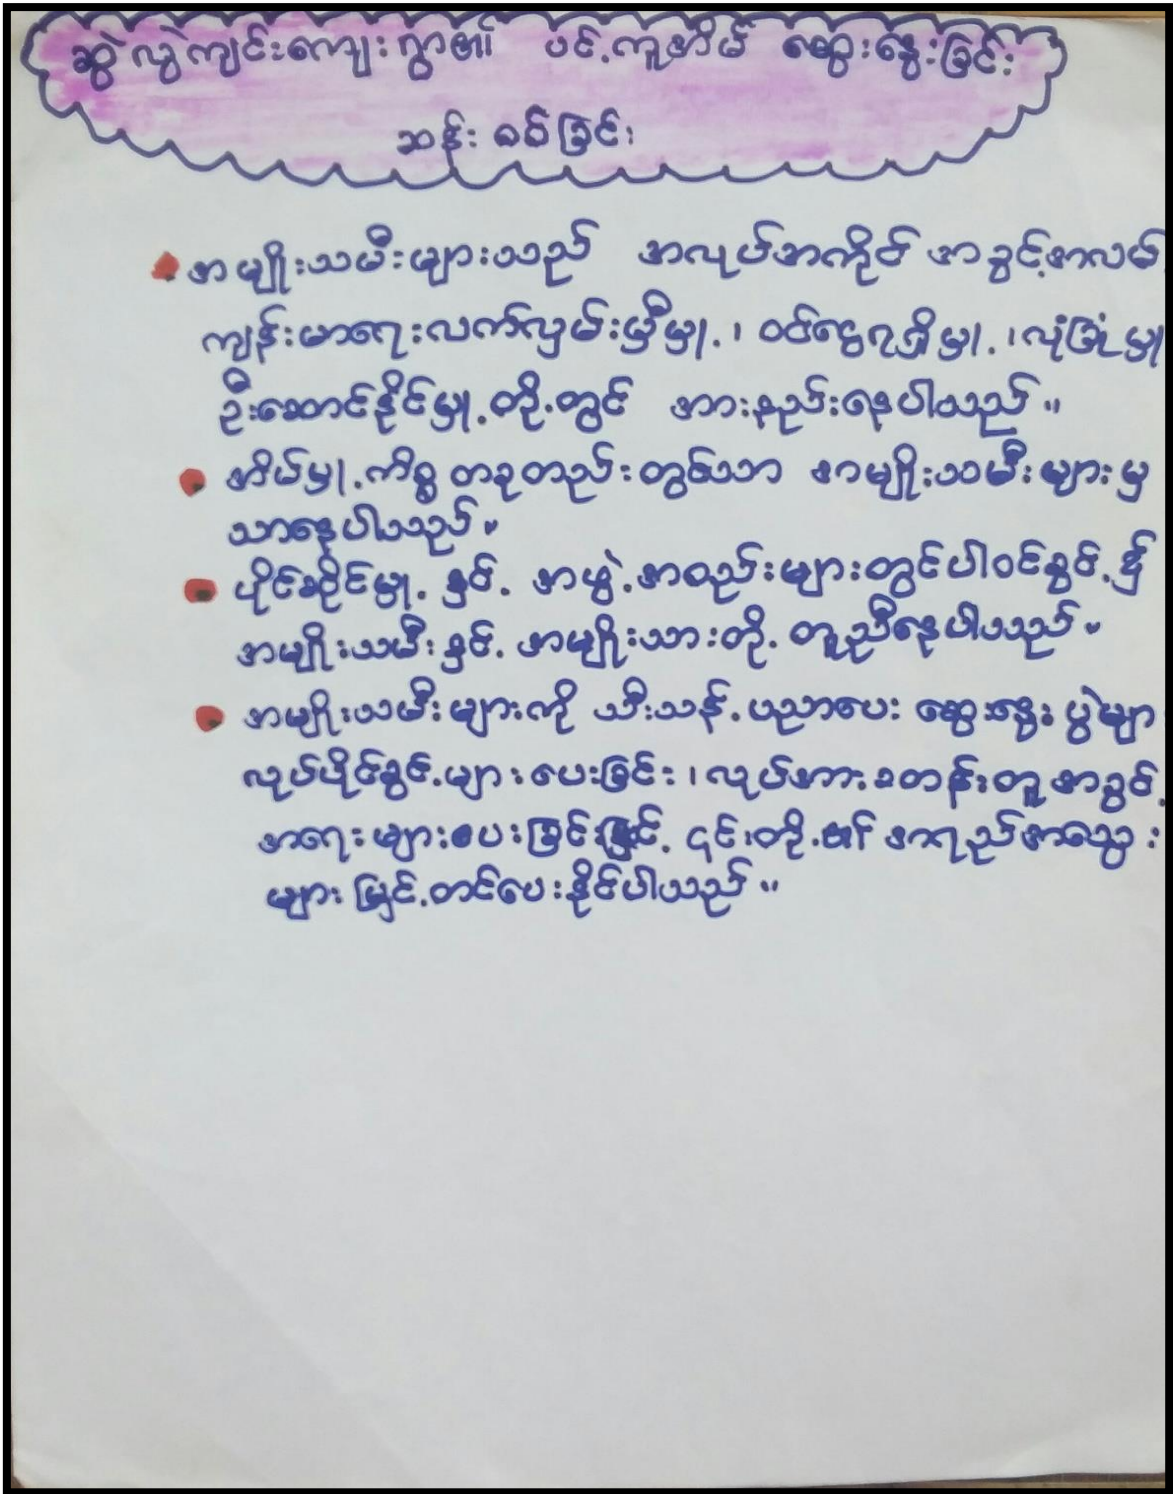 ဆွဲလွဲကျင်းကျေးရွာ၏ ပင့်ကူအိမ် ဆွေးနွေးခြင်း
ဆန်းစစ်ခြင်း
အမျိုးသမီးများသည် အလုပ်အကိုင် အခွင့်အလမ်
ကျန်းမာရေးလက်လှမ်းမှီမှု့၊ ဝင်ငွေရရှိမှု့၊ လုံခြုံမှု
ဦးဆောင်နိုင်မှု့တို့တွင် အားနည်းနေပါသည်။
အိမ်မှု့ကိစ္စ တခုတည်းတွင်သာ အမျိုးသမီးများမှ
သာနေပါသည်။
ပိုင်ဆိုင်မှု့ နှင့် အဖွဲ့အစည်းများတွင်ပါဝင်ခွင့်
အမျိုးသမီးနှင့် အမျိုးသားတို့ တူညီနေပါသည်။
အမျိုးသမီးများကို သီးသန့်ပညာပေး ဆွေးနွေးပွဲမျာ
လုပ်ပိုင်ခွင့်များပေးခြင်း၊ လုပ်အားခတန်းတူအခွင့်
အရေးများပေးခြင်းဖြင့် ၎င်းတို့၏ အရည်အသွေး
များမြှင့်တင်ပေးနိုင်ပါသည်။